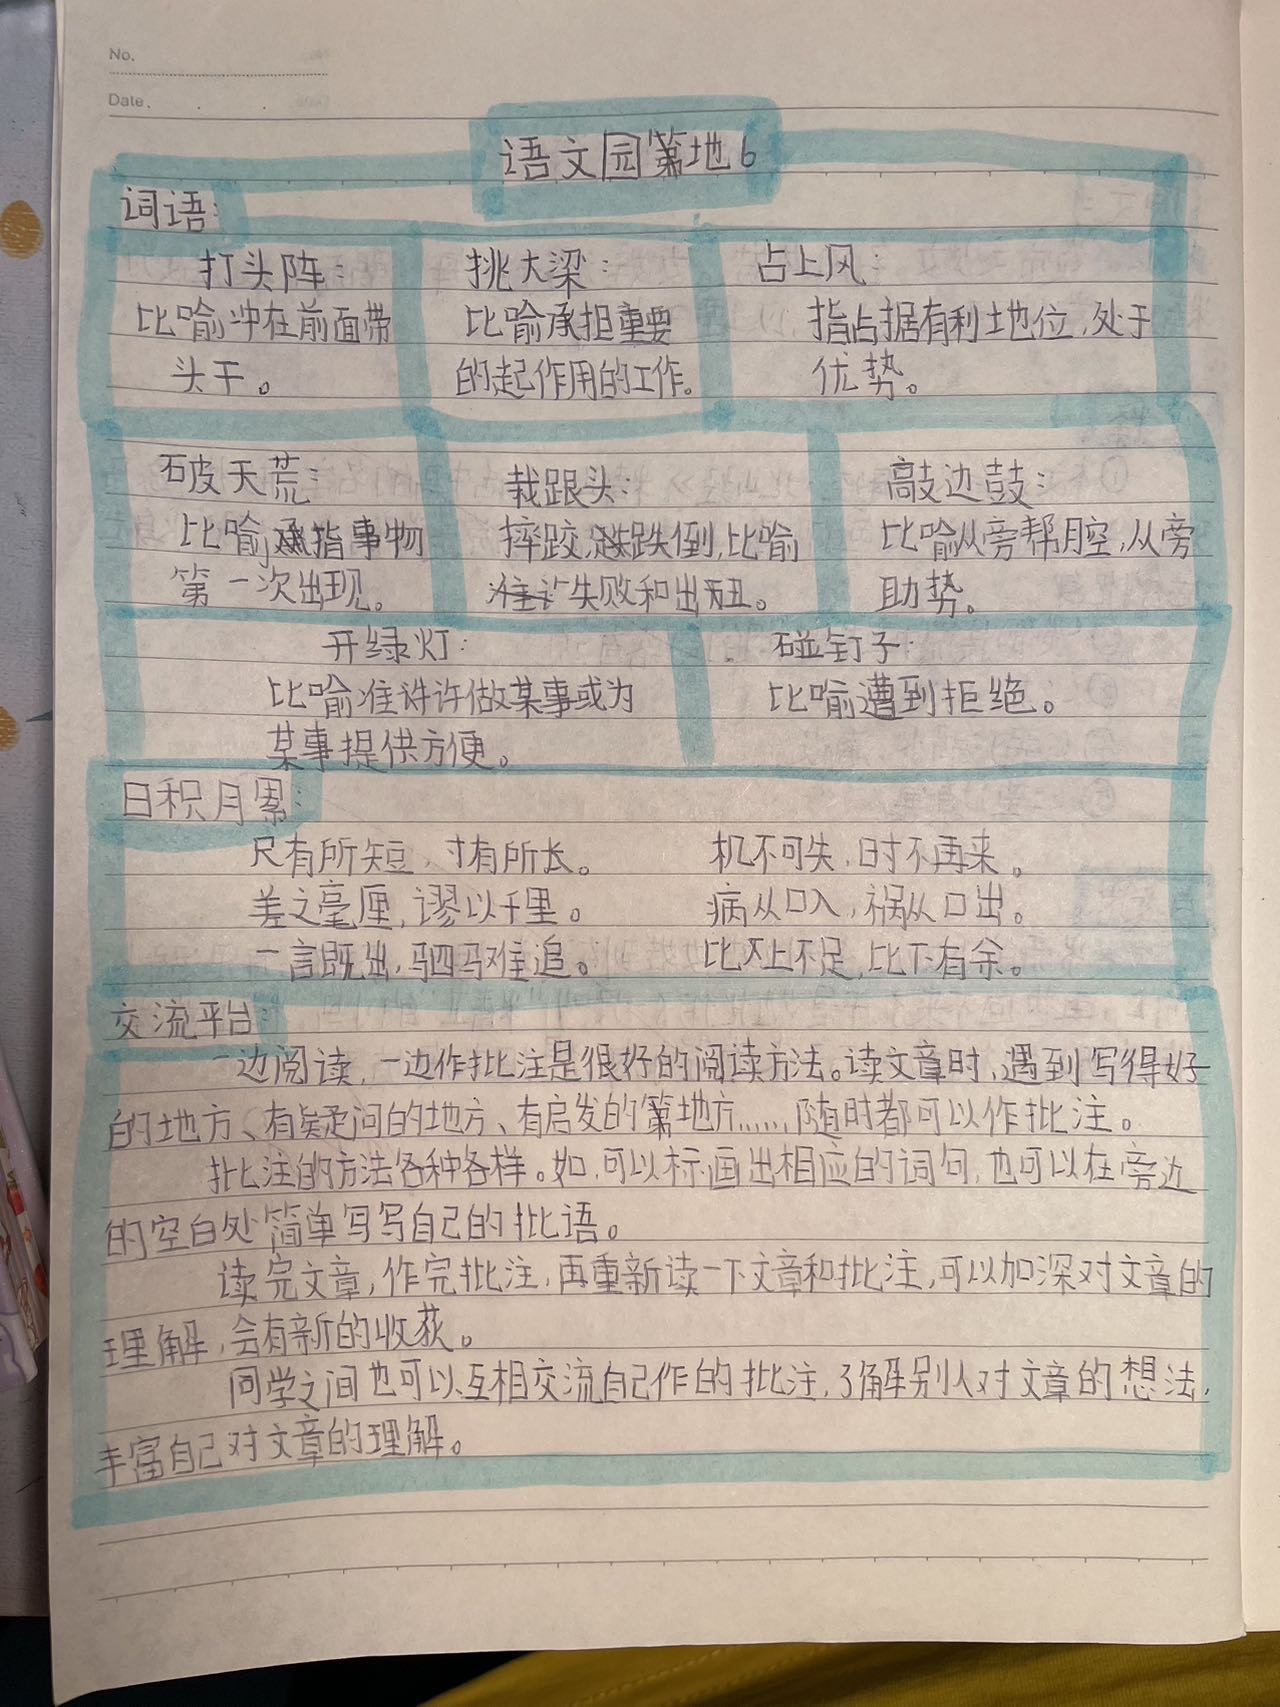 No.
Date.
语文园地6
词语:
打头阵:
比喻冲在前面带
头干。
挑大梁:
比喻承担重要
的起作用的工作。
占上风:
指占据有利地位,处于
优势。
破天荒:
比喻指事物
第一次出现。
栽跟头:
摔跤,跌倒,比喻
失败和出丑。
敲边鼓:
比喻从旁帮腔,从旁
助势。
开绿灯:
比喻准许做某事或为
某事提供方便。
碰钉子:
比喻遭到拒绝。
日积月累:
尺有所短,寸有所长。 机不可失,时不再来。
差之毫厘,谬以千里。 病从口入,祸从口出。
一言既出,驷马难追。 比上不足,比下有余。
交流平台:
一边阅读,一边作批注是很好的阅读方法。读文章时,遇到写得好
的地方、有疑问的地方、有启发的地方……,随时都可以作批注。
批注的方法各种各样。如,可以标画出相应的词句,也可以在旁边
的空白处简单写写自己的批语。
读完文章,作完批注,再重新读一下文章和批注,可以加深对文章的
理解,会有新的收获。
同学之间也可以互相交流自己作的批注,了解别人对文章的想法,
丰富自己对文章的理解。